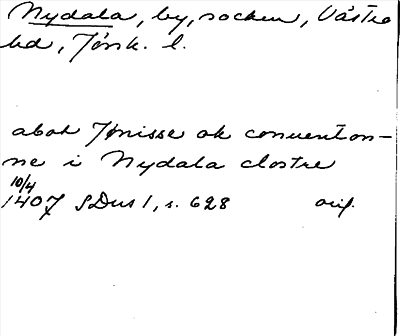 Nydala, by, socken, Västra
hd, Jönk. l.
abot Jønisse ok conuenton-
ne i Nydala clostre
10/4
1407 SDns 1, s. 628 orig.